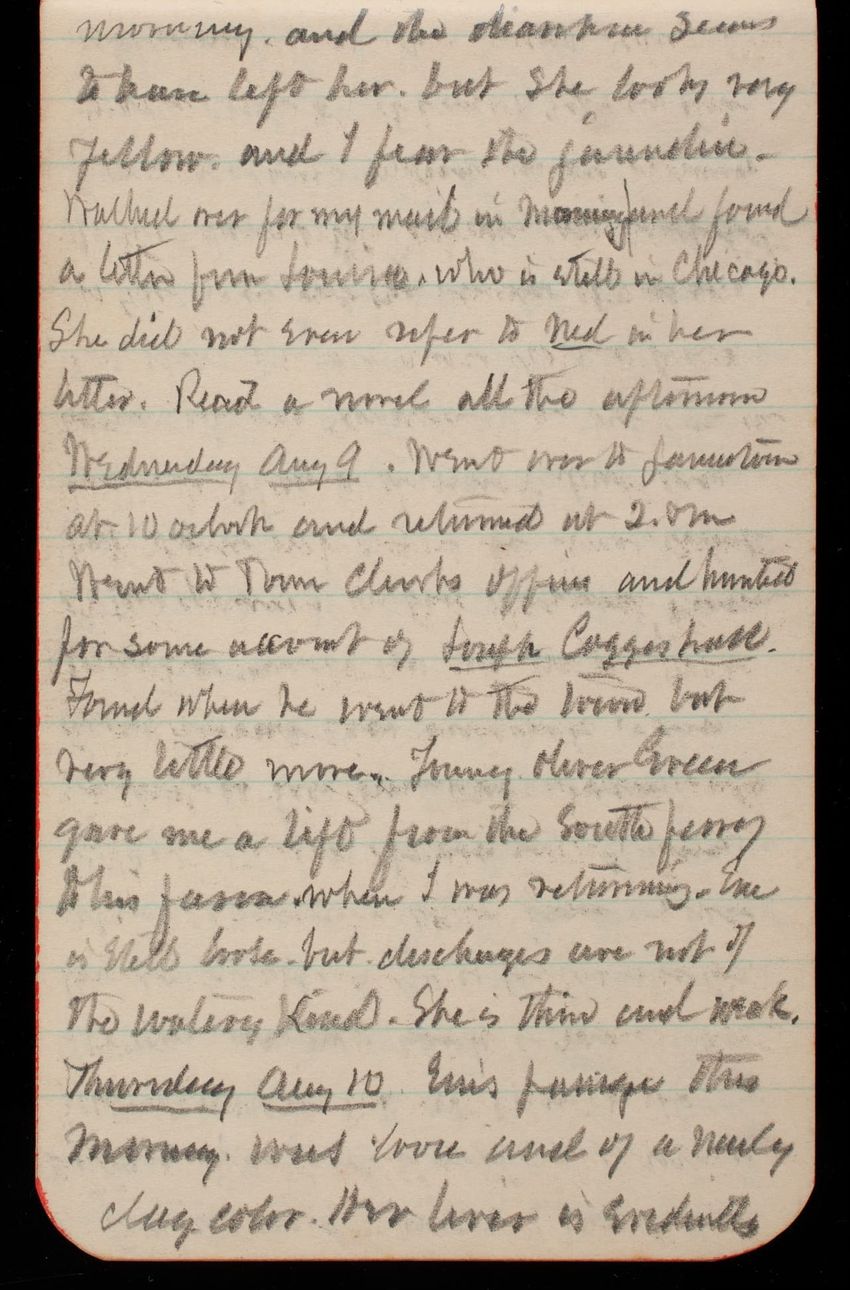 morning. and the diarrhea seems
to have left her. but she looks very
yellow. and I fear the jaundice.
Walked over for my mail in morning and found
a letter from Louisa. who is still in Chicago.
She did not even refer to Ned in her
letter. Read a novel all the afternoon
Wednesday Aug 9. Went over to Jamestown
at 10 oclock and returned at 2. Pm
Went to Town Clerks office and hunted
for some account of Joseph Coggeshall.
Found when he went to the town but
very little more. Young Oliver Green
gave me a lift from the South ferry
to his farm. when I was returning. Em
is still loose. but discharges are not of
the watery kind. She is thin and weak.
Thursday Aug 10. Em's passage this
morning. was loose and of a nearly
clay color. Her liver is evidently